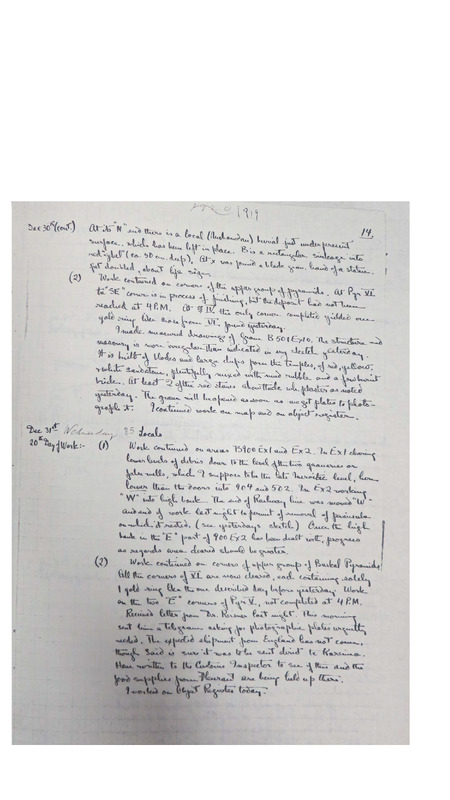 1919
14.
Dec 30th (cont.) At its "N" end there is a local (Muhamadan) burial just under present
surface, which has been left in place. B is a rectangular sinkage into
red "gebel" (ca. 50 cm. deep). At x was found a black gran. head of a statue.
about life size.
(2) Work continued on corners of the upper group of pyramids. At Pyr. VI
the "SE" corner is in process of finishing, but the deposit has not been
reached at 4 P.M. At IV, the only corner completed yielded one
gold ring like those from VI, found yesterday.
I made measured drawings of Gran. B 501 Ex 10. The structure and
masonry is more irregular than indicated in my sketch yesterday.
It is built of blocks and large chips from the temples, of red, yellow,
& white sandstone, plentifully mixed with mud rubble and a few burnt
bricks. At least 2 of the red stones show the plaster as noted
yesterday. The gran. will be opened as soon as we get plates to photo-
graph it. I continued work on map and on object register.
Dec 31st Wednesday 85 Locals
20th Day of Work:- (1) Work continued on areas B900 Ex1 and Ex2. In Ex1 clearing
lower levels of debris down to the level of the two granaries or
which I suppose to be the late Meroitic level, being
lower than the doors into 904 and 502. In Ex2 working
"W" into high bank. The end of Railway line was moved "W"
and end of work last night to permit of removal of peninsula
on which it rested, (see yesterday's sketch) Once the high
bank in the "E" part of 900 Ex2 has been dealt with, progress
as regards area cleared should be greater.
(2) Work continued on corners of upper group of Barkal Pyramids
All the corners of VI are now cleared, each containing solely
1 gold ring like the one described day before yesterday. Work
on the two "E" corners of Pyr. V, not completed at 4 P.M.
Received letter from Dr. Reisner last night. This morning
sent him a telegram asking for photographic plates urgently
needed. The expected shipment from England has not come,
though Said is sure it was to be sent direct to Kareima.
Have written to the Customs Inspector to see if this and the
food supplies from are being held up there.
I worked on Object Register today.